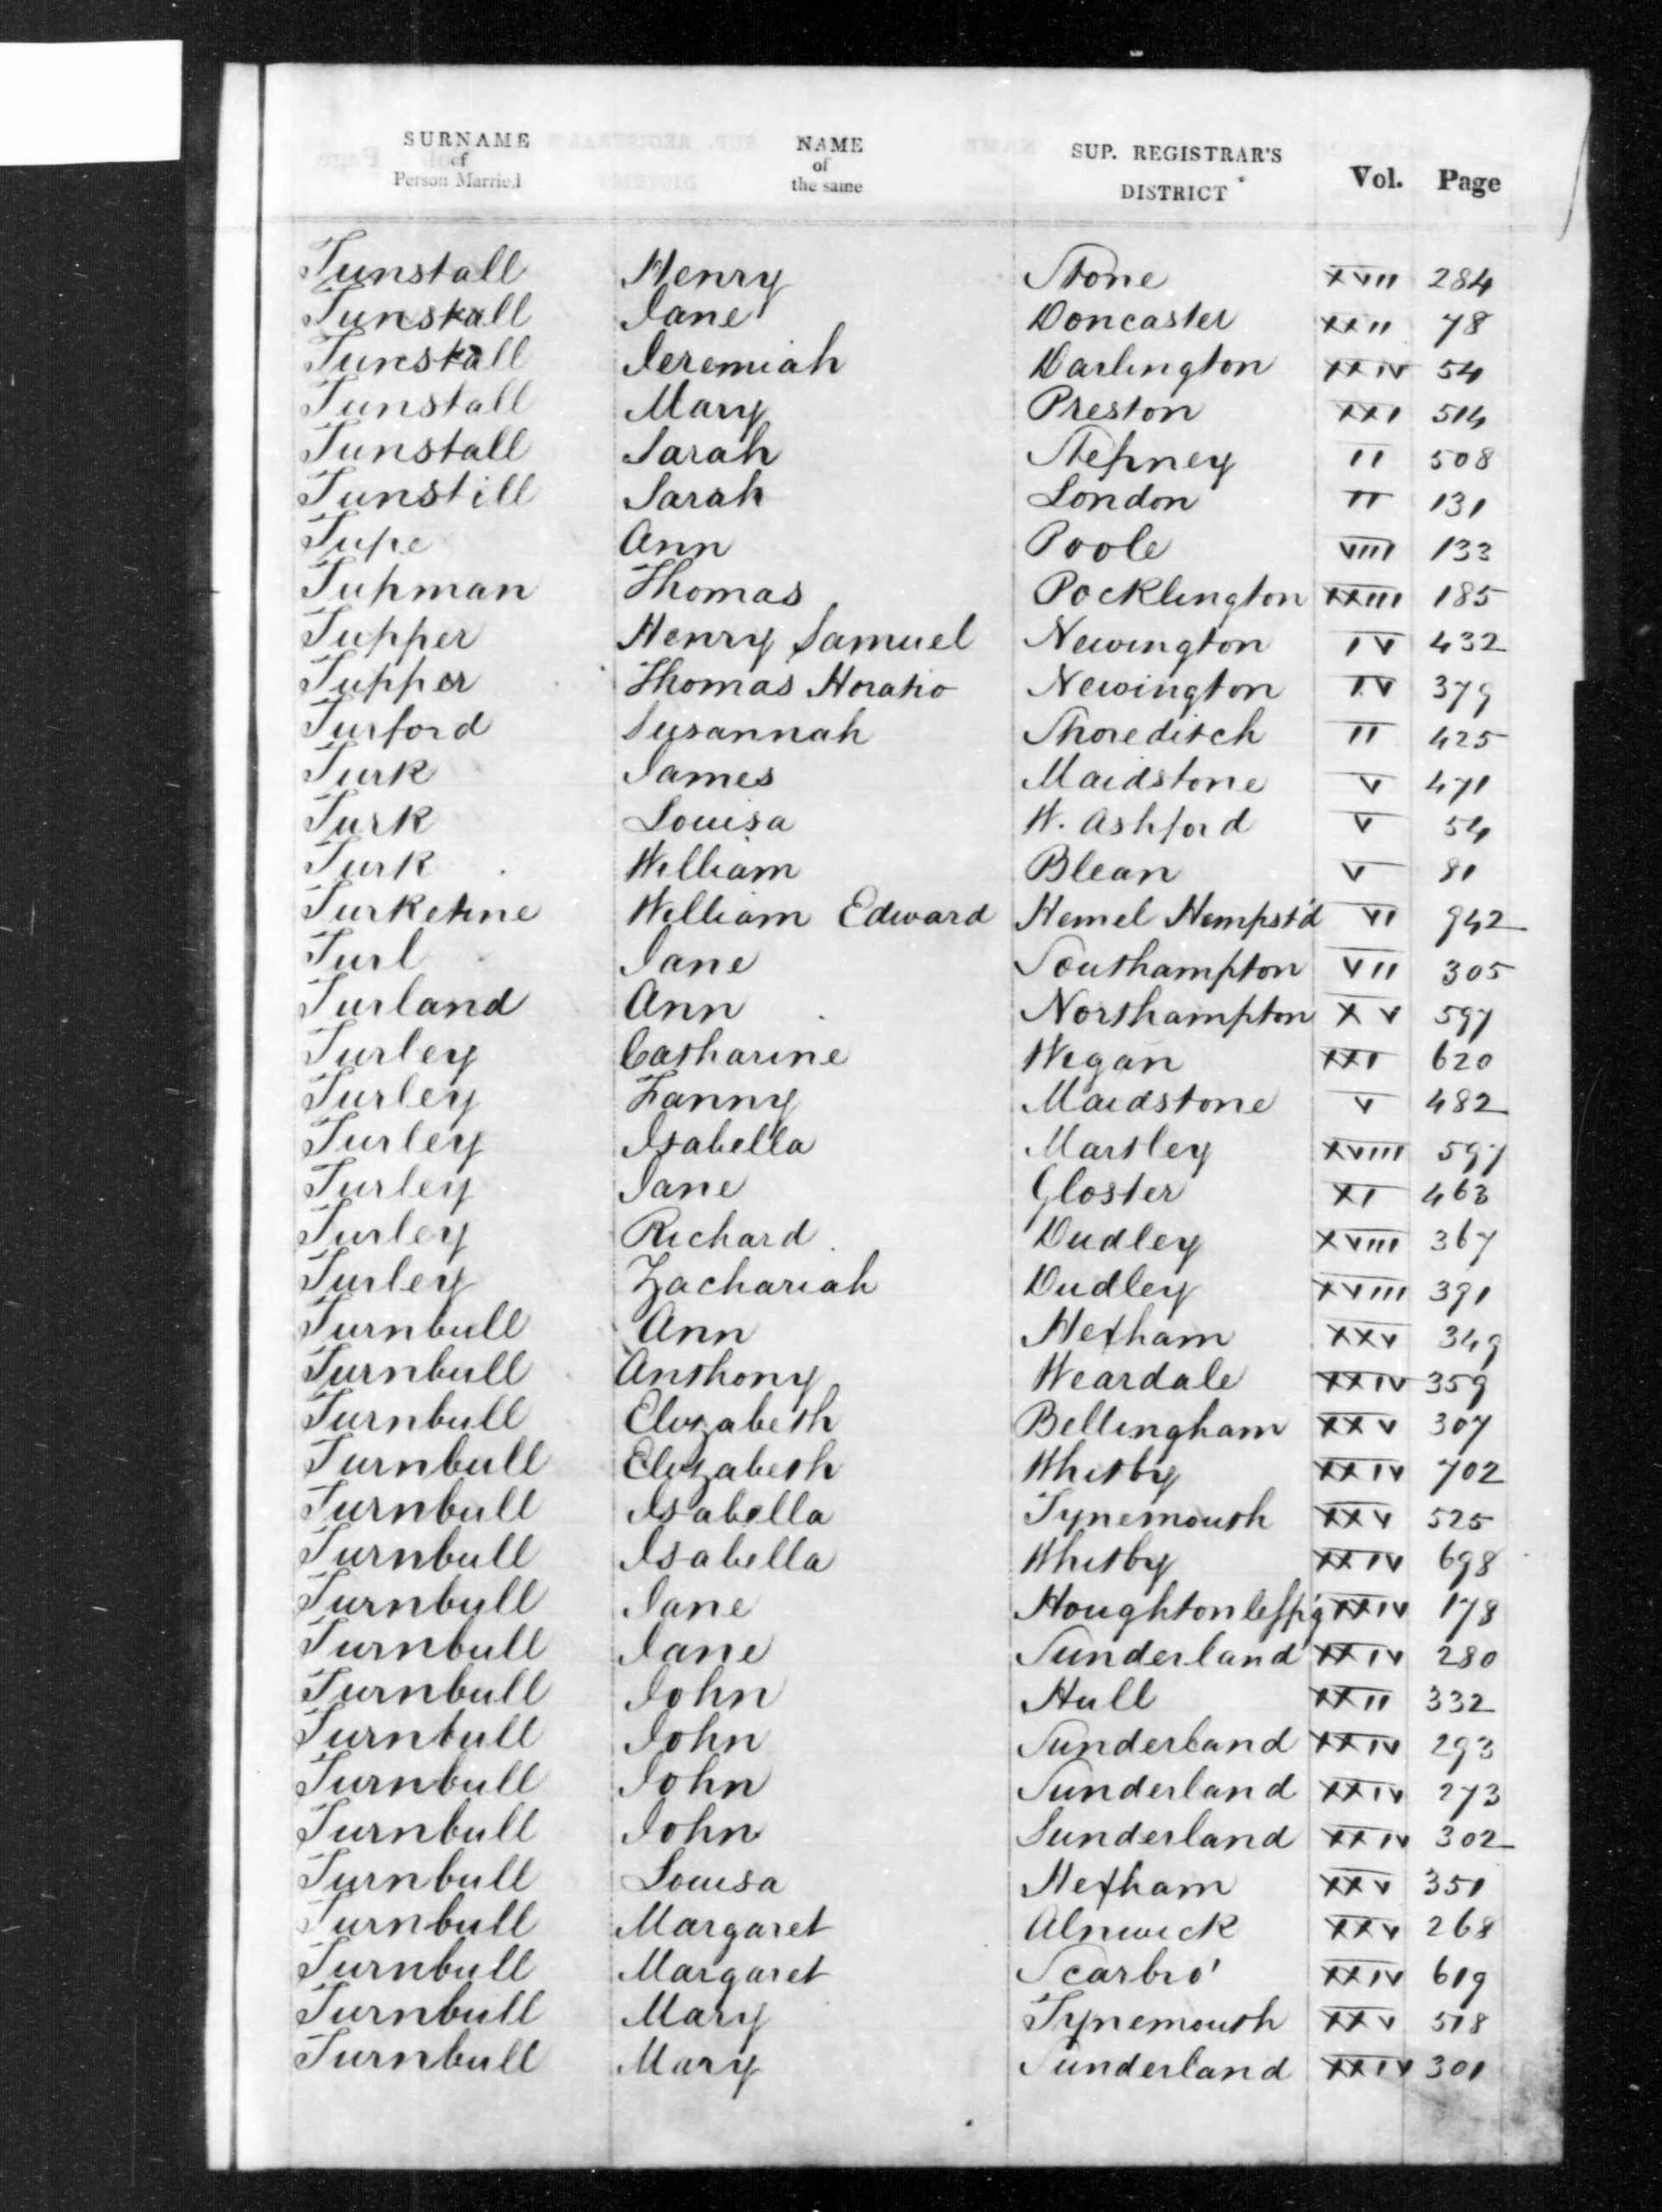 SURNAME of Person Married NAME of the same SUP. REGISTRAR'S DISTRICT Vol. Page
Tunstall Henry Stone XVII 284
Tunstall Jane Doncaster XXII 78
Tunstall Jeremiah Darlington XXIV 54
Tunstall Mary Preston XXI 514
Tunstall Sarah Stepney II 508
Tunstill Sarah London II 131
Tupe Ann Poole VIII 133
Tupman Thomas Pocklington XXIII 185
Tupper Henry Samuel Newington IV 432
Tupper Thomas Horatio Newington IV 379
Turford Susannah Shoreditch II 425
Turk James Maidstone V 471
Turk Louisa W. Ashford V 54
Turk William Blean V 81
Turketine William Edward Hemel Hempst'd VI 942
Turl Jane Southampton VII 305
Turland Ann Northampton XV 597
Turley Catharine Wigan XXI 620
Turley Fanny Maidstone V 482
Turley Isabella Martley XVIII 597
Turley Jane Gloster XI 463
Turley Richard Dudley XVIII 367
Turley Zachariah Dudley XVIII 391
Turnbull Ann Hexham XXV 349
Turnbull Anthony Weardale XXIV 359
Turnbull Elizabeth Bellingham XXV 307
Turnbull Elizabeth Whitby XXIV 702
Turnbull Isabella Tynemouth XXV 525
Turnbull Isabella Whitby XXIV 698
Turnbull Jane Houghton le sp'g XXIV 178
Turnbull Jane Sunderland XXIV 280
Turnbull John Hull XXII 332
Turnbull John Sunderland XXIV 293
Turnbull John Sunderland XXIV 273
Turnbull John Sunderland XXIV 302
Turnbull Louisa Hexham XXV 351
Turnbull Margaret Alnwick XXV 268
Turnbull Margaret Scarbro' XXIV 619
Turnbull Mary Tynemouth XXV 518
Turnbull Mary Sunderland XXIV 301